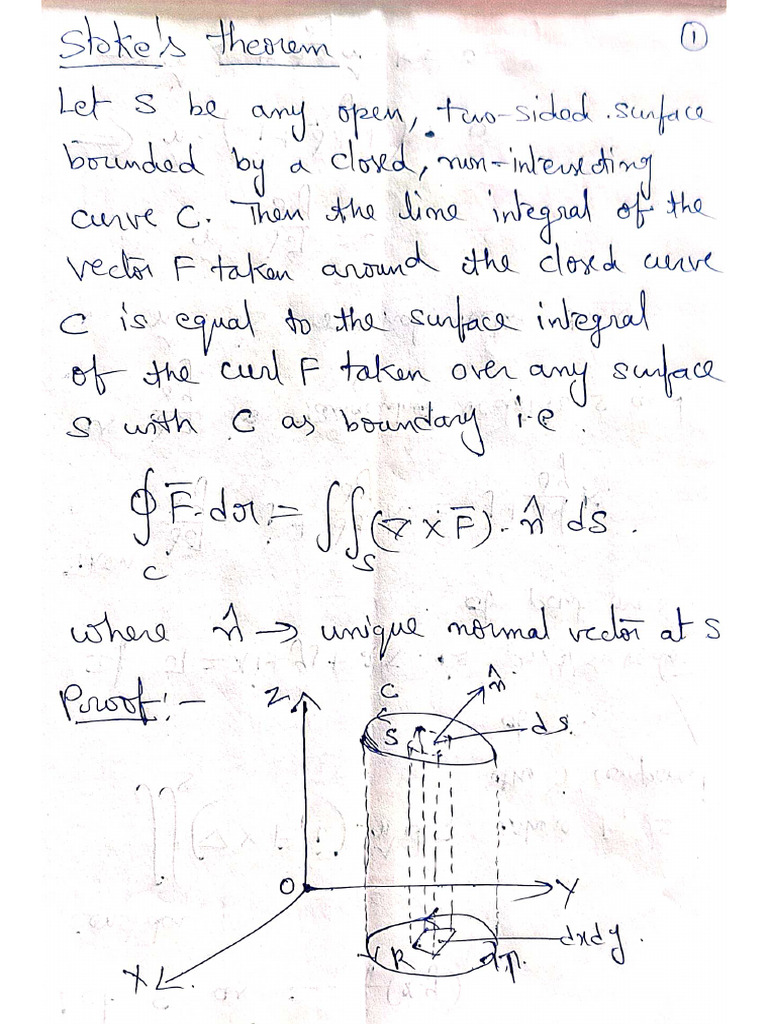 Stoke's theorem.
①
Let S be any open, two-sided surface
bounded by a closed, non-intersecting
curve C. Then the line integral of the
vector F taken around the closed curve
C is equal to the surface integral
of the curl F taken over any surface
S with C as boundary i.e
∮_C F̅.dr = ∬_S (∇ × F̅). n̂ ds.
where n̂ → unique normal vector at S
Proof:-
Z
C
n̂
S
ds.
O
Y
R
dxdy.
X